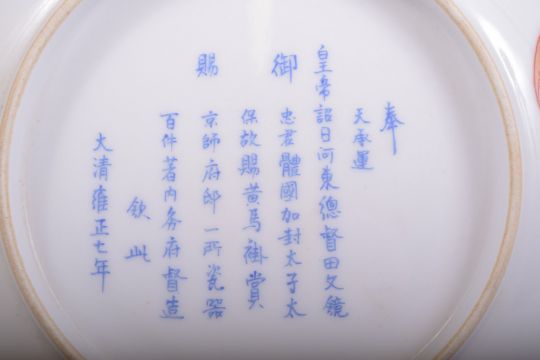 奉
天承運
皇帝詔曰河東總督田文鏡
忠君體國加封太子太
保故賜黃馬褂賞
京師府邸一所瓷器
百件著內务府督造
欽此
大清雍正七年
御
賜